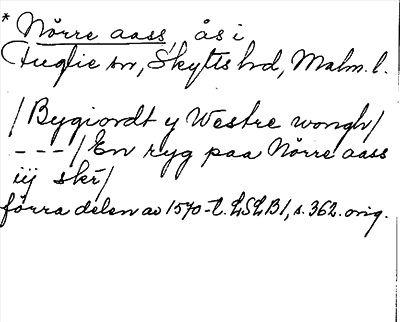 * Nörre aass, ås i
Fuglie sn, Skytts hd, Malm. l.
/Bygiordt y Westre wongh/
- - - /En ryg paa Nörre aass
iij skr/
förra delen av 1570-t. LSLB1, s. 362. orig.